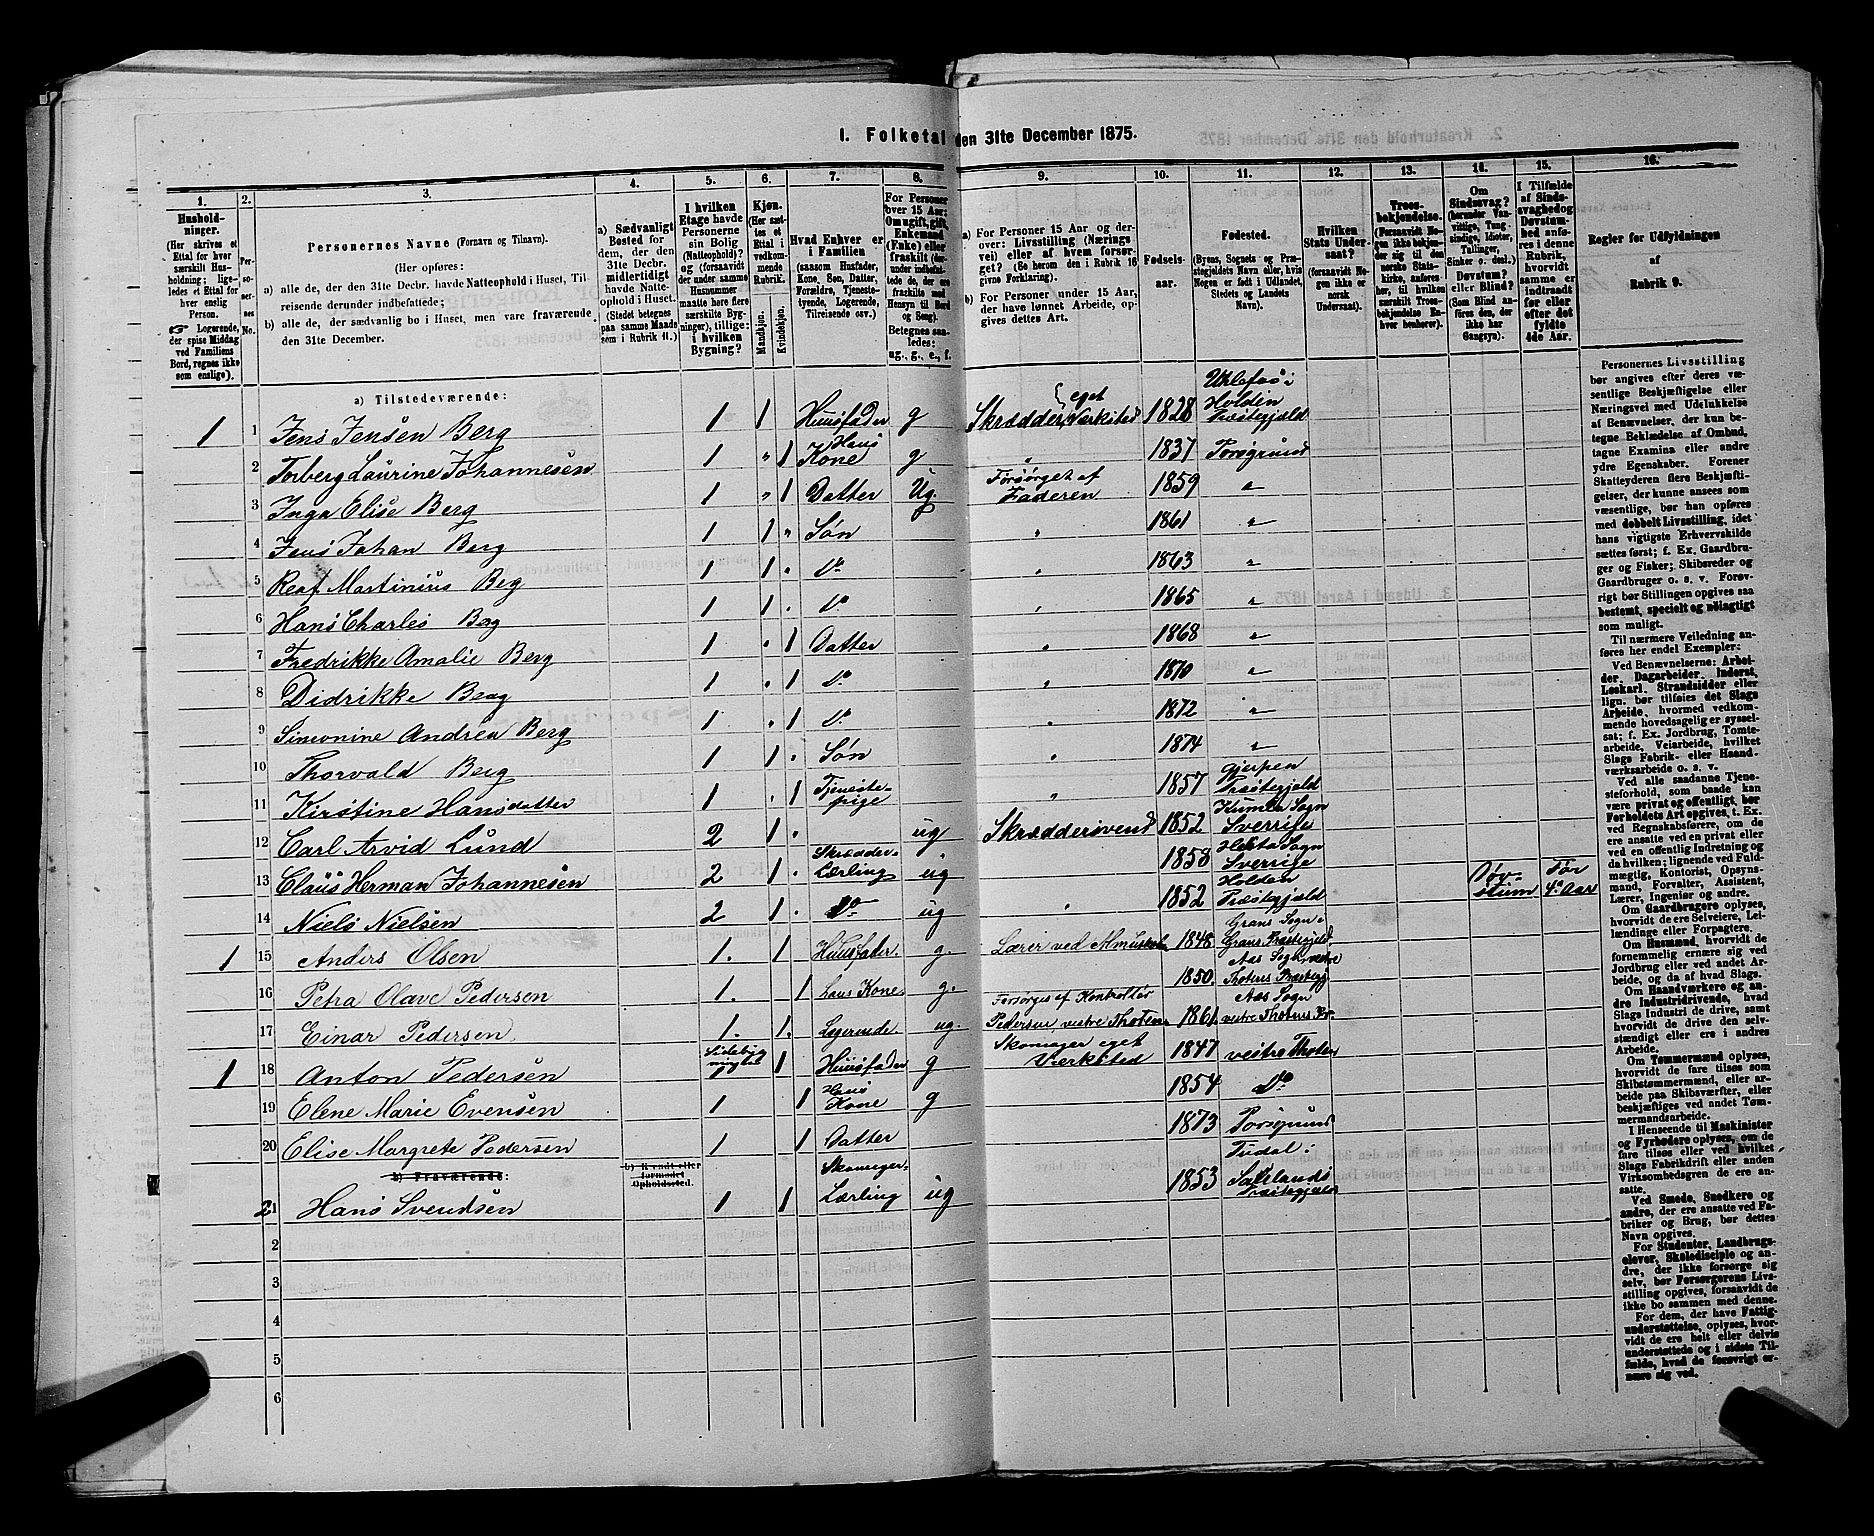 1. Folketal den 31te December 1875.
1. 2. 3. 4. 5. 6. 7. 8. 9. 10. 11. 12. 13. 14. 15. 16.
Husholdninger.
(Her skrives et Ettal for hver særskilt Husholdning; ligeledes et Ettal for hver enslig Person.
Logerende, der spise Middag ved Familiens Bord, regnes ikke som enslige).
Personernes No.
Personernes Navne (Fornavn og Tilnavn).
(Her opføres:
a) alle de, der den 31te Decbr. havde Natteophold i Huset, Tilreisende derunder indbefattede;
b) alle de, der sædvanlig bo i Huset, men vare fraværende den 31te December.
a) Sædvanligt Bosted for dem, der den 31te Decbr. midlertidigt havde Natteophold i Huset. (Stedet betegnes paa samme Maade som i Rubrik 11.)
I hvilken Etage havde Personerne sin Bolig (Natteophold)? og (forsaavidt der under samme Husnummer maatte høre flere særskilte Bygninger), tillige: i hvilken Bygning?
Kjøn.
(Her sættes et Ettal i vedkommende Rubrik.
Mandkjøn. Kvindekjøn.
Hvad Enhver er i Familien
(saasom Husfader, Kone, Søn, Datter, Forældre, Tjenestetyende, Logerende, Tilreisende osv.)
For Personer over 15 Aar: Om ugift, gift, Enkemand (Enke) eller fraskilt (derunder indbefattede de, der ere fraskilte med Hensyn til Bord og Seng).
Betegnes saaledes: ug., g., e., f.
a) For Personer 15 Aar og derover: Livsstilling (Næringsvei) eller af hvem forsørget? (Se herom den i Rubrik 16 givne Forklaring).
b) For Personer under 15 Aar, der have lønnet Arbeide, opgives dettes Art.
Fødselsaar.
Fødested.
(Byens, Sognets og Præstegjeldets Navn eller, hvis Nogen er født i Udlandet, Stedets og Landets Navn).
Hvilken Stats Undersaat?
(forsaavidt Nogen ikke er norsk Undersaat).
Troesbekjendelse.
(Forsaavidt Nogen ikke bekjender sig til den norske Statskirke, anføres her, til hvilken særskilt Troesbekjendelse Enhver henhører).
Om Sindssvag? (herunder Vanvittige, Tungsindige, Idioter, Tullinger, Sinker o. desl.) Døvstum? eller Blind? (Som Blind anføres den, der ikke har Gangsyn).
I Tilfælde af Sindssvaghed og Døvstumhed anføres i denne Rubrik, hvorvidt samme er indtraadt før eller efter det fyldte 4de Aar.
Regler for Udfyldningen af Rubrik 9.
a) Tilstedeværende:
1 1 Jens Jensen Berg 1 1 Huusfader g Skrædder, eget Værksted 1828 Uhlefos i Holden Præstegjæld
2 Torberg Laurine Johannesen 1 " 1 Hans Kone g " 1837 Porsgrund
3 Inga Elise Berg 1 " 1 Datter Ug Forsørget af Faderen 1859 "
4 Jens Johan Berg 1 1 " Søn " 1861 "
5 Reaf Martinius Berg 1 1 " Do " 1863 "
6 Hans Charles Berg 1 1 " Do " 1865 "
7 Fredrikke Amalie Berg 1 " 1 Datter " 1868 "
8 Didrikke Berg 1 " 1 Do " 1870 "
9 Simonine Andrea Berg 1 " 1 Do " 1872 "
10 Thorvald Berg 1 1 " Søn " 1874 "
11 Kirstine Hansdatter 1 " 1 Tjenestepige " 1857 Gjerpen Præstegjeld
12 Carl Arvid Lund 2 1 " ug Skræddersvend 1852 Kumla Sogn Sverrige
13 Claus Herman Johannesen 2 1 " Skrædder-Lærling ug 1858 Sogn Sverrige
14 Niels Nielsen 2 1 " Do ug " 1852 Holden Præstegjæld Døvstum Før 4de Aar
1 15 Anders Olsen 1. 1 Huusfader. g. Lærer ved Almuskol 1848. Grans Sogn: Grans Præstegjeld.
16 Petra Olave Pedersen 1. 1 hans Kone. g. 1850. Aas Sogn, vestre Thotens Præstegj
17 Einar Pedersen. 1. 1. Logerende. ug. Forsørges af Kontrollør Pedersen vestre Thoten. 1861. Aas Sogn vestre Thotens Pr.
1 18 Anton Pedersen Sidebygnigtet 1 1 Huusfader g Skomager eget Værksted 1847 vestre Thoten
19 Elene Marie Evensen 1 1 Hans Kone g 1854 Do
20 Elise Margrete Pedersen 1 1 Datter 1873 Porsgrund
b) Fraværende: b) Kjendt eller formodet Opholdssted.
21 Hans Svendsen 1 1 Skomager-Lærling ug 1853 Tudal: Sauland's Præstegjeld
2
3
4
5
6
Personernes Livsstilling bør angives efter deres væsentlige Beskjæftigelse eller Næringsvei med Udelukkelse af Benævnelser, der kun betegne Beklædelse af Ombud, tagne Examina eller andre ydre Egenskaber. Forener Skatteyderen flere Beskjæftigelser, der kunne ansees som væsentlige, bør han opføres med dobbelt Livsstilling, idet hans vigtigste Erhvervskilde sættes først; f. Ex. Gaardbruger og Fisker; Skibsreder og Gaardbruger o. s. v. Forøvrigt bør Stillingen opgives saa bestemt, specielt og nøiagtigt som muligt.
Til nærmere Veiledning anføres her endel Exempler:
Ved Benævnelserne: Arbeider, Dagarbeider, Inderst, Løskarl, Strandsidder eller lign. bør tilføies det Slags Arbeide, hvormed vedkommende hovedsagelig er sysselsat; f. Ex. Jordbrug, Tomtearbeide, Veiarbeide, hvilket Slags Fabrik- eller Haandværksarbeide o. s. v.
Ved alle saadanne Tjenesteforhold, som baade kan være privat og offentligt, bør Forholdets Art opgives, t. Ex. ved Regnskabsførere, om de ere ansatte ved en privat eller ved en offentlig Indretning og da hvilken; lignende ved Fuldmægtig, Kontorist, Opsynsmand, Forvalter, Assistent, Lærer, Ingeniør og andre.
Om Gaardbrugere oplyses, hvorvidt de ere Selveiere, Leilændinge eller Forpagtere.
Om Husmænd, hvorvidt de fornemmelig ernære sig ved Jordbrug eller ved andet Arbeide, og da af hvad Slags.
Om Haandværkere og andre Industridrivende, hvad Slags Industri de drive, samt hvorvidt de drive den selvstændigt eller ere i andres Arbeide.
Om Tømmermænd oplyses, hvorvidt de fare tilsøs som Skibstømmermænd, eller arbeide paa Skibsværfter, eller beskjæftiges ved andet Tømmermandsarbeide.
I Henseende til Maskinister og Fyrbødere oplyses, om de fare tilsøs eller ved hvilket Slags Fabrikdrift eller anden Virksomhedsgren de ere ansatte.
Ved Smede, Snedkere og andre, der ere ansatte ved Fabriker og Brug, bør dettes Navn opgives.
For Studenter, Landbrugselever, Skoledisciple og andre, der ikke forsørge sig selv, bør Forsørgerens Livsstilling opgives, forsaavidt de ikke bo sammen med denne.
For dem, der have Fattigunderstøttelse, oplyses, hvorvidt de ere helt eller delvis understøttede og i sidste Tilfælde, hvad de forøvrigt ernære sig ved.